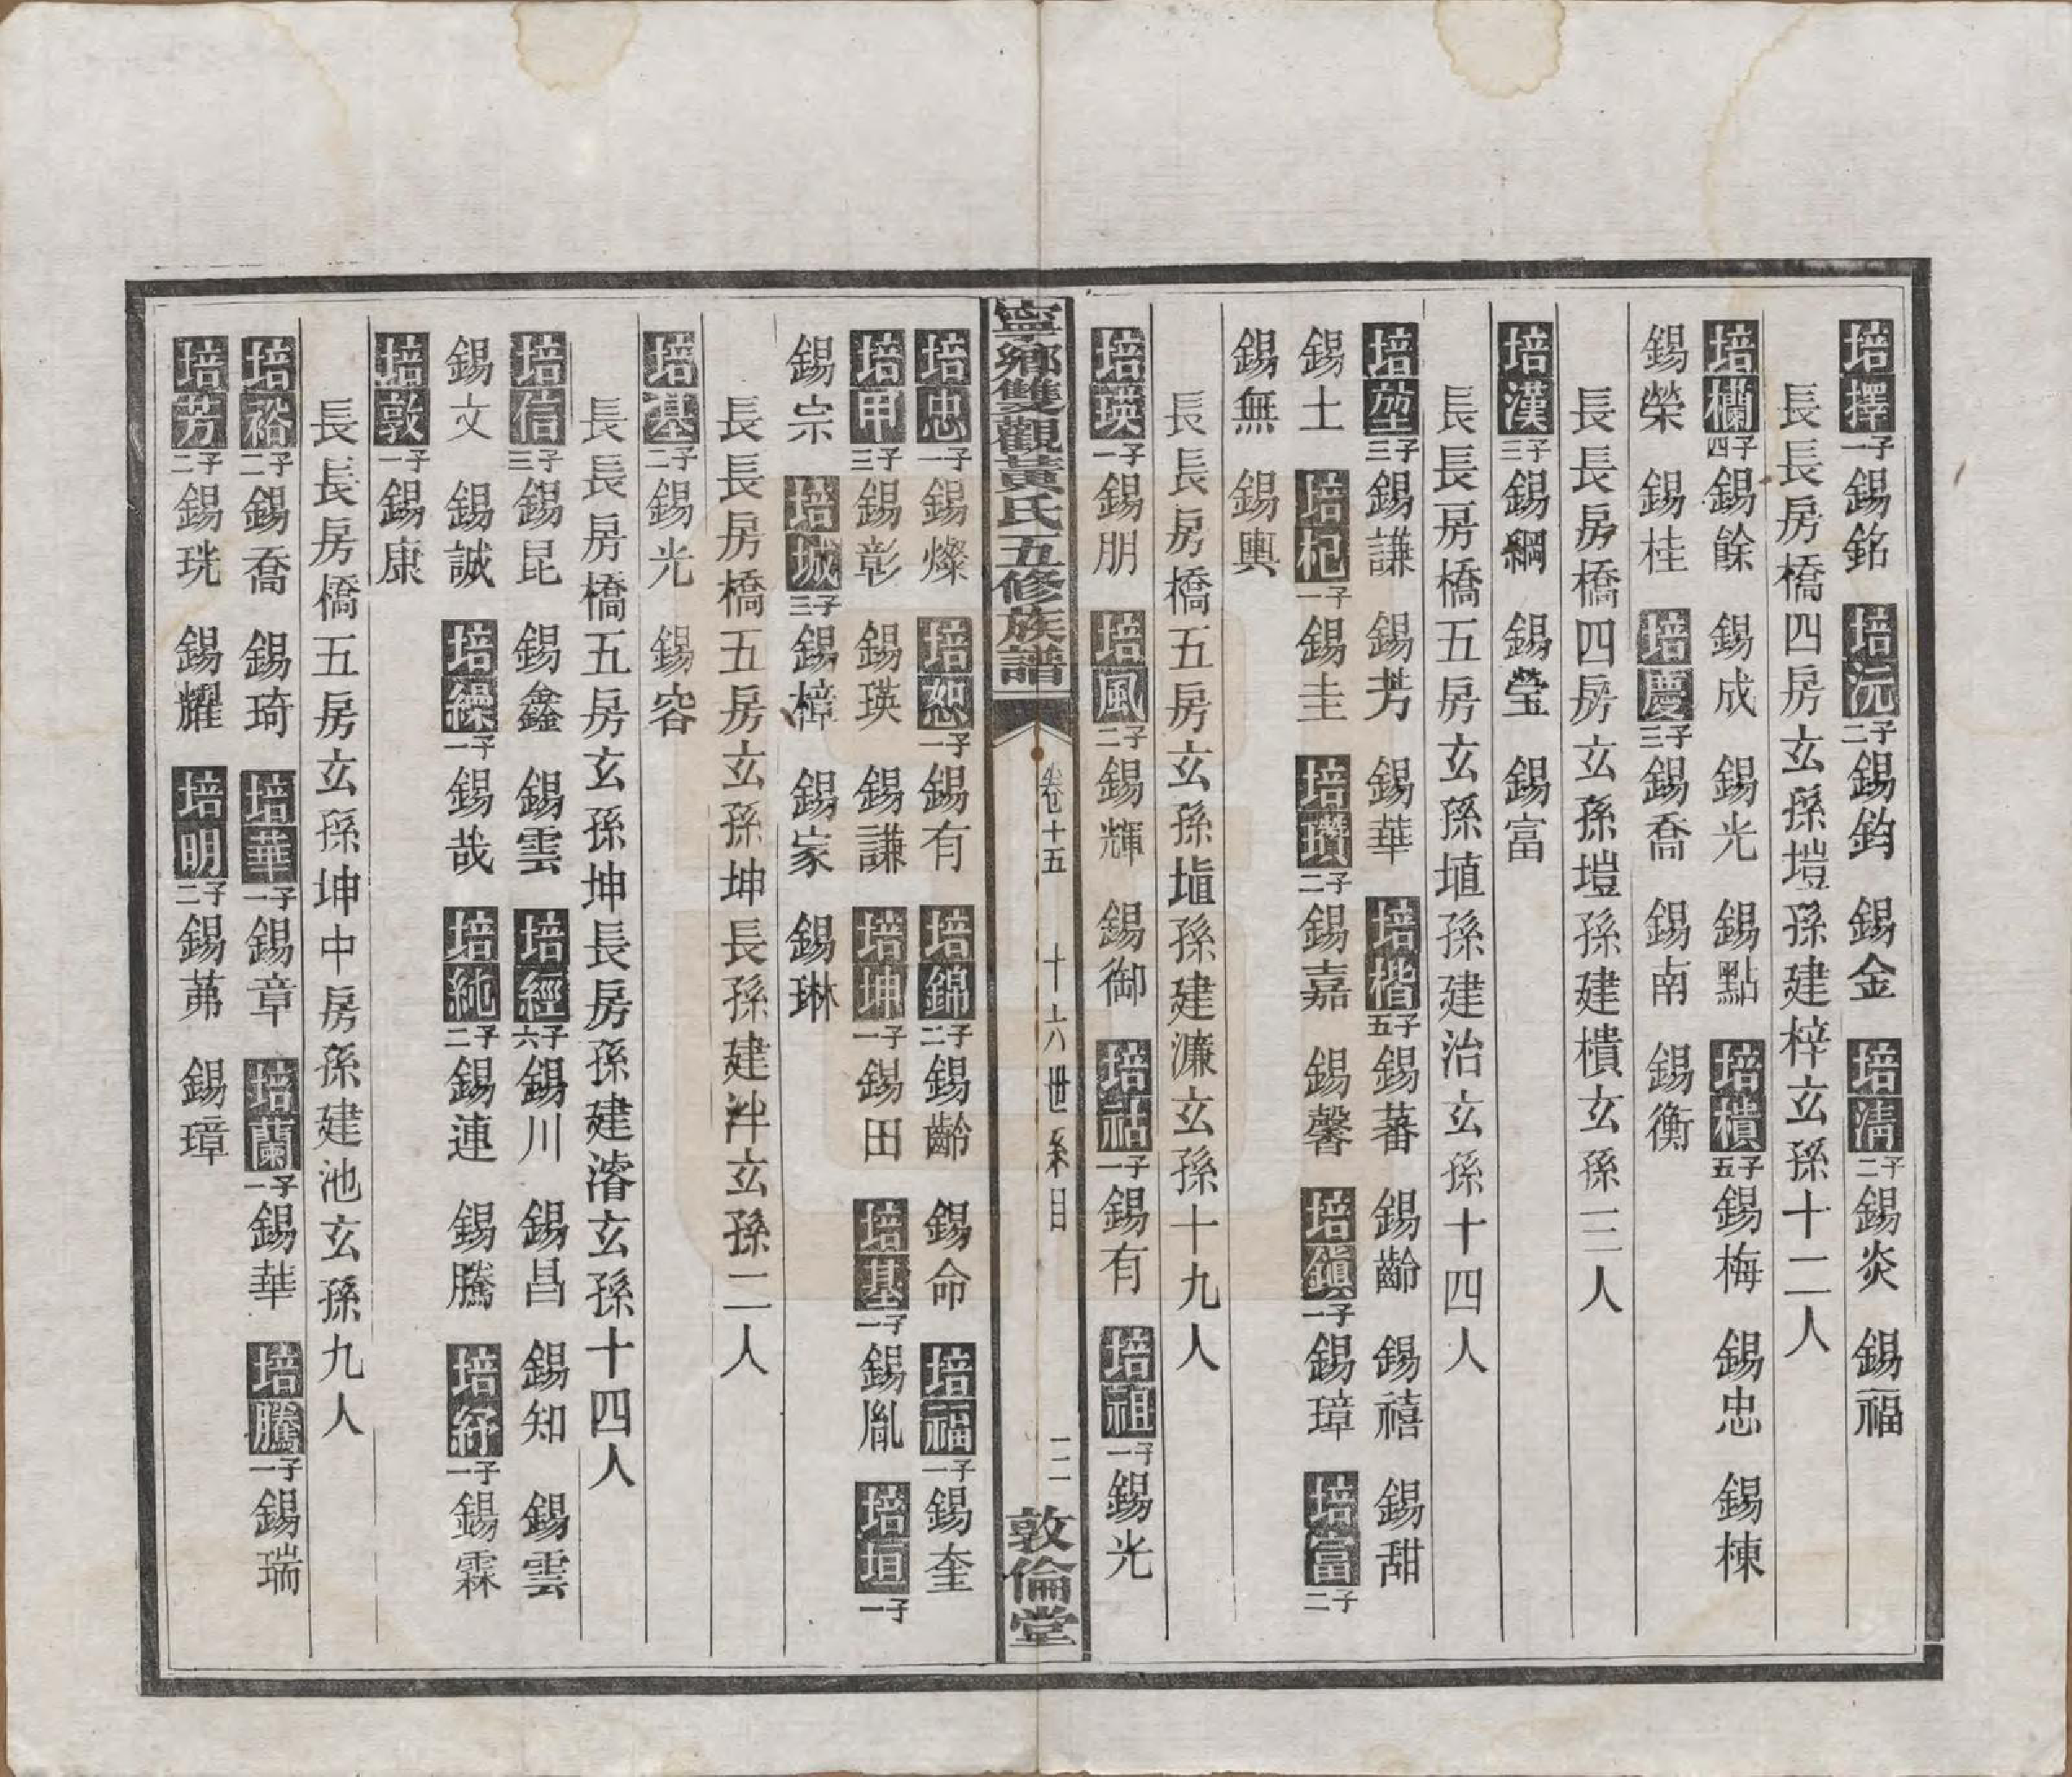 培擇一子錫銘　培沅二子錫鈞　錫金　培清二子錫炎　錫福
長長房橋四房玄孫塏孫建梓玄孫十二人
培欄四子錫餘　錫成　錫光　錫點　培樻五子錫梅　錫忠　錫棟
錫榮　錫桂　培慶三子錫喬　錫南　錫衡
長長房橋四房玄孫塏孫建樻玄孫三人
培漢三子錫綱　錫瑩　錫富
長長房橋五房玄孫埴孫建治玄孫十四人
培堃三子錫謙　錫芳　錫華　培楷五子錫蕃　錫齡　錫禧　錫甜
錫土　培杞一子錫圭　培瓚二子錫嘉　錫馨　培鎭一子錫璋　培富二子
錫無　錫輿
長長房橋五房玄孫埴孫建濂玄孫十九人
培瑛一子錫朋　培風二子錫輝　錫御　培祜一子錫有　培祖一子錫光
寧鄉雙觀黃氏五修族譜　卷十五　十六世系目　三　敦倫堂
培忠一子錫燦　培恕一子錫有　培錦二子錫齡　錫命　培福一子錫奎
培甲三子錫彰　錫瑛　錫謙　培坤一子錫田　培基一子錫胤　培垣一子
錫宗　培城三子錫樟　錫家　錫琳
長長房橋五房玄孫坤長孫建泮玄孫二人
培基二子錫光　錫容
長長房橋五房玄孫坤長房孫建濬玄孫十四人
培信三子錫昆　錫鑫　錫雲　培經六子錫川　錫昌　錫知　錫雲
錫文　錫誠　培繰一子錫哉　培純二子錫連　錫騰　培紓一子錫霖
培敦一子錫康
長長房橋五房玄孫坤中房孫建池玄孫九人
培裕二子錫喬　錫琦　培華一子錫章　培蘭一子錫華　培騰一子錫瑞
培芳二子錫珖　錫耀　培明二子錫茀　錫璋